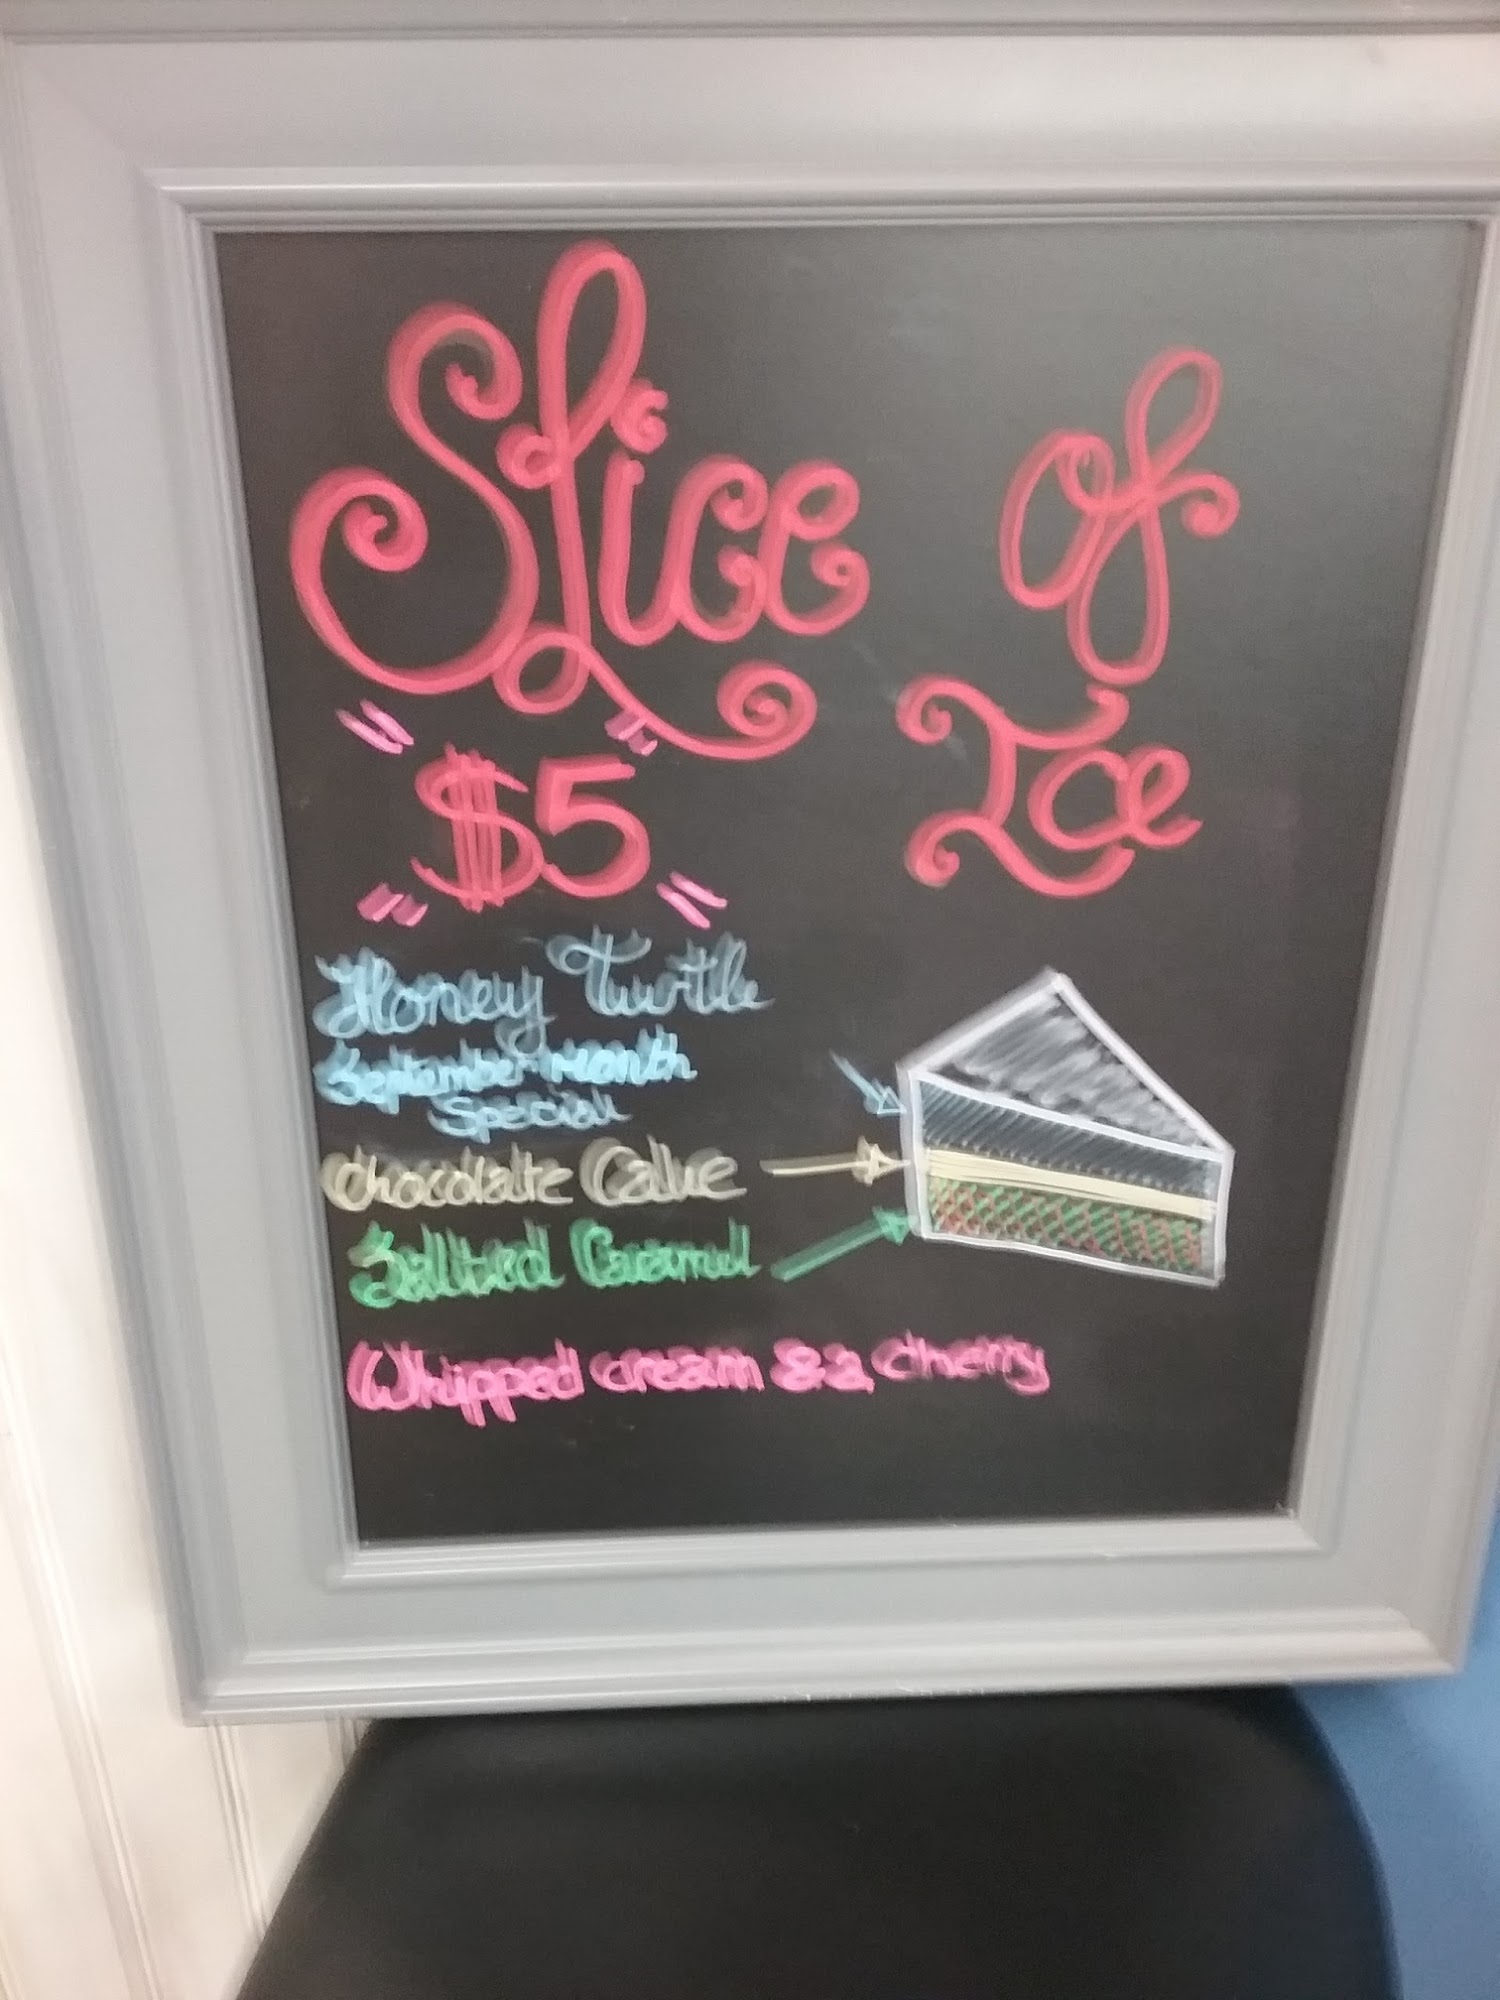 Slice of
Ice
$5
Honey Turtle
September month
Special
Chocolate Cake
Salted Caramel
Whipped cream & a cherry